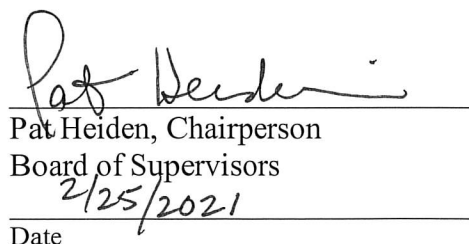 Pat Heiden
Pat Heiden, Chairperson
Board of Supervisors
2/25/2021
Date